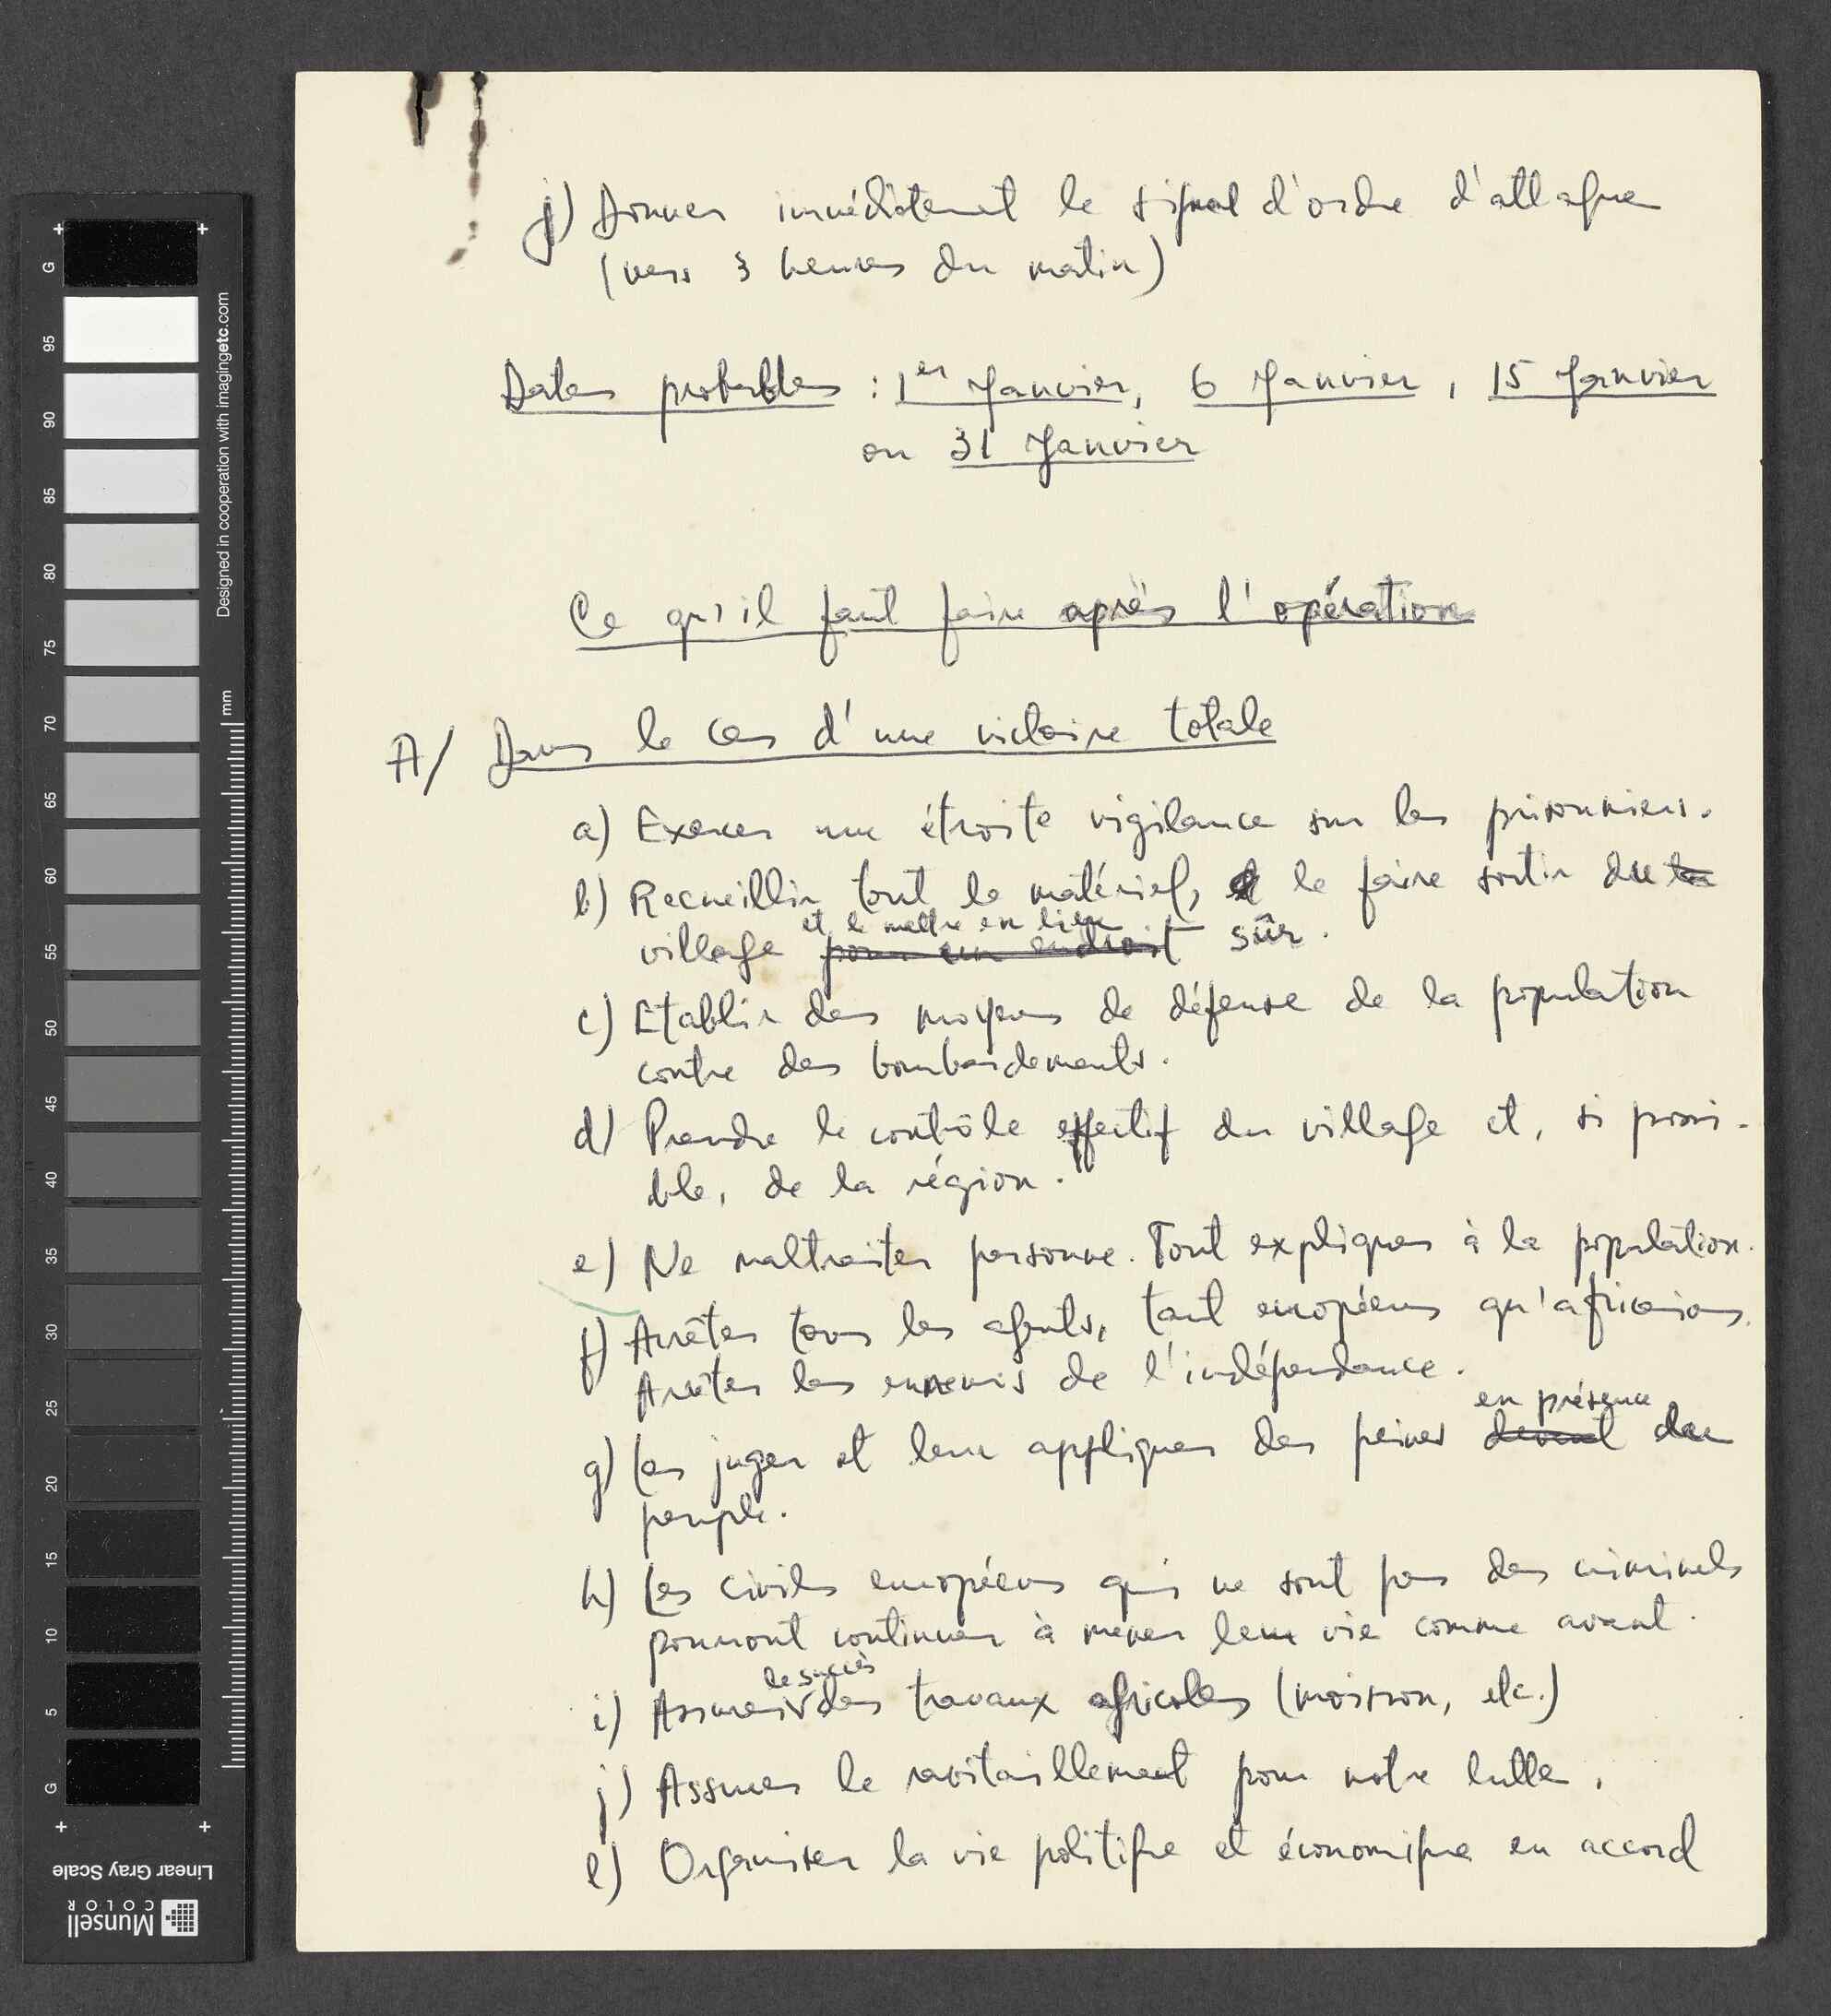 j) Donner immédiatement le signal d'ordre d'attaque
(vers 3 heures du matin)
Dates probables : 1er Janvier, 6 Janvier, 15 Janvier
ou 31 Janvier
Ce qu'il faut faire après l'opération
A/ Dans le cas d'une victoire totale
a) Exercer une étroite vigilance sur les prisonniers.
b) Recueillir tout le matériel, et le faire sortir du la
et le mettre en lieu
village pour un endroit sûr.
c) Etablir des moyens de défense de la population
contre des bombardements.
d) Prendre le contrôle effectif du village et, si possi-
ble, de la région.
e) Ne maltraiter personne. Tout expliquer à la population.
f) Arrêter tous les agents, tant européens qu'africains.
Arrêter les ennemis de l'indépendance.
en présence
g) Les juger et leur appliquer des peines devant du
peuple.
h) Les civils européens qui ne sont pas des criminels
pourront continuer à mener leur vie comme avant.
le succès
i) Assurer des travaux agricoles (moisson, etc.)
j) Assurer le ravitaillement pour notre lutte.
l) Organiser la vie politique et économique en accord
G
95
90
85
80
75
70
65
60
55
50
45
40
35
30
25
20
15
10
5
G
mm
Designed in cooperation with imagingetc.com
Linear Gray Scale
Munsell
COLOR